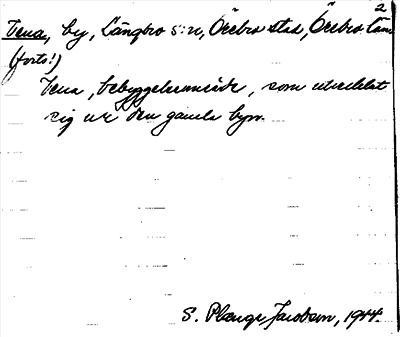 2
Vena, by, Längbro s:n, Örebro stad, Örebro län
(forts!)
Vena, bebyggelseområde, som utvecklat
sig ur den gamla byn.
S. Plange Jacobson, 1944.